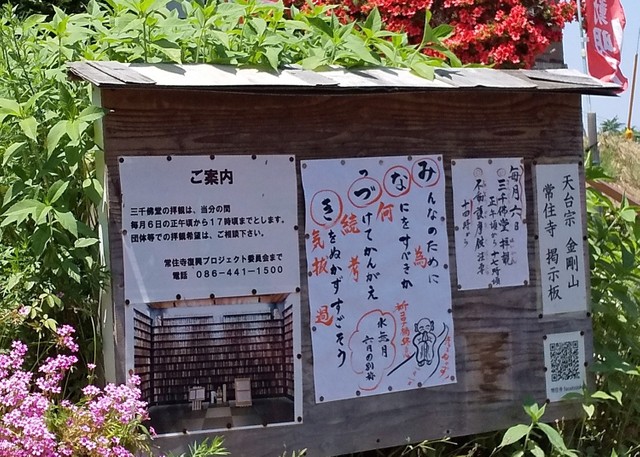 ご案内
三千佛堂の拝観は、当分の間
毎月6日の正午頃から17時頃までとします。
団体等での拝観希望は、ご相談下さい。
常住寺復興プロジェクト委員会まで
電話 086-441-1500
みんなのために
為
なにをすべきか
何
つづけてかんがえ
続 考
きをぬかずすごそう
気 抜 過
水無月
六月の別称
毎月六日
三千佛堂拝観
正午頃から十七時頃
不動護摩供法要
十四時から
天台宗 金剛山
常住寺 掲示板